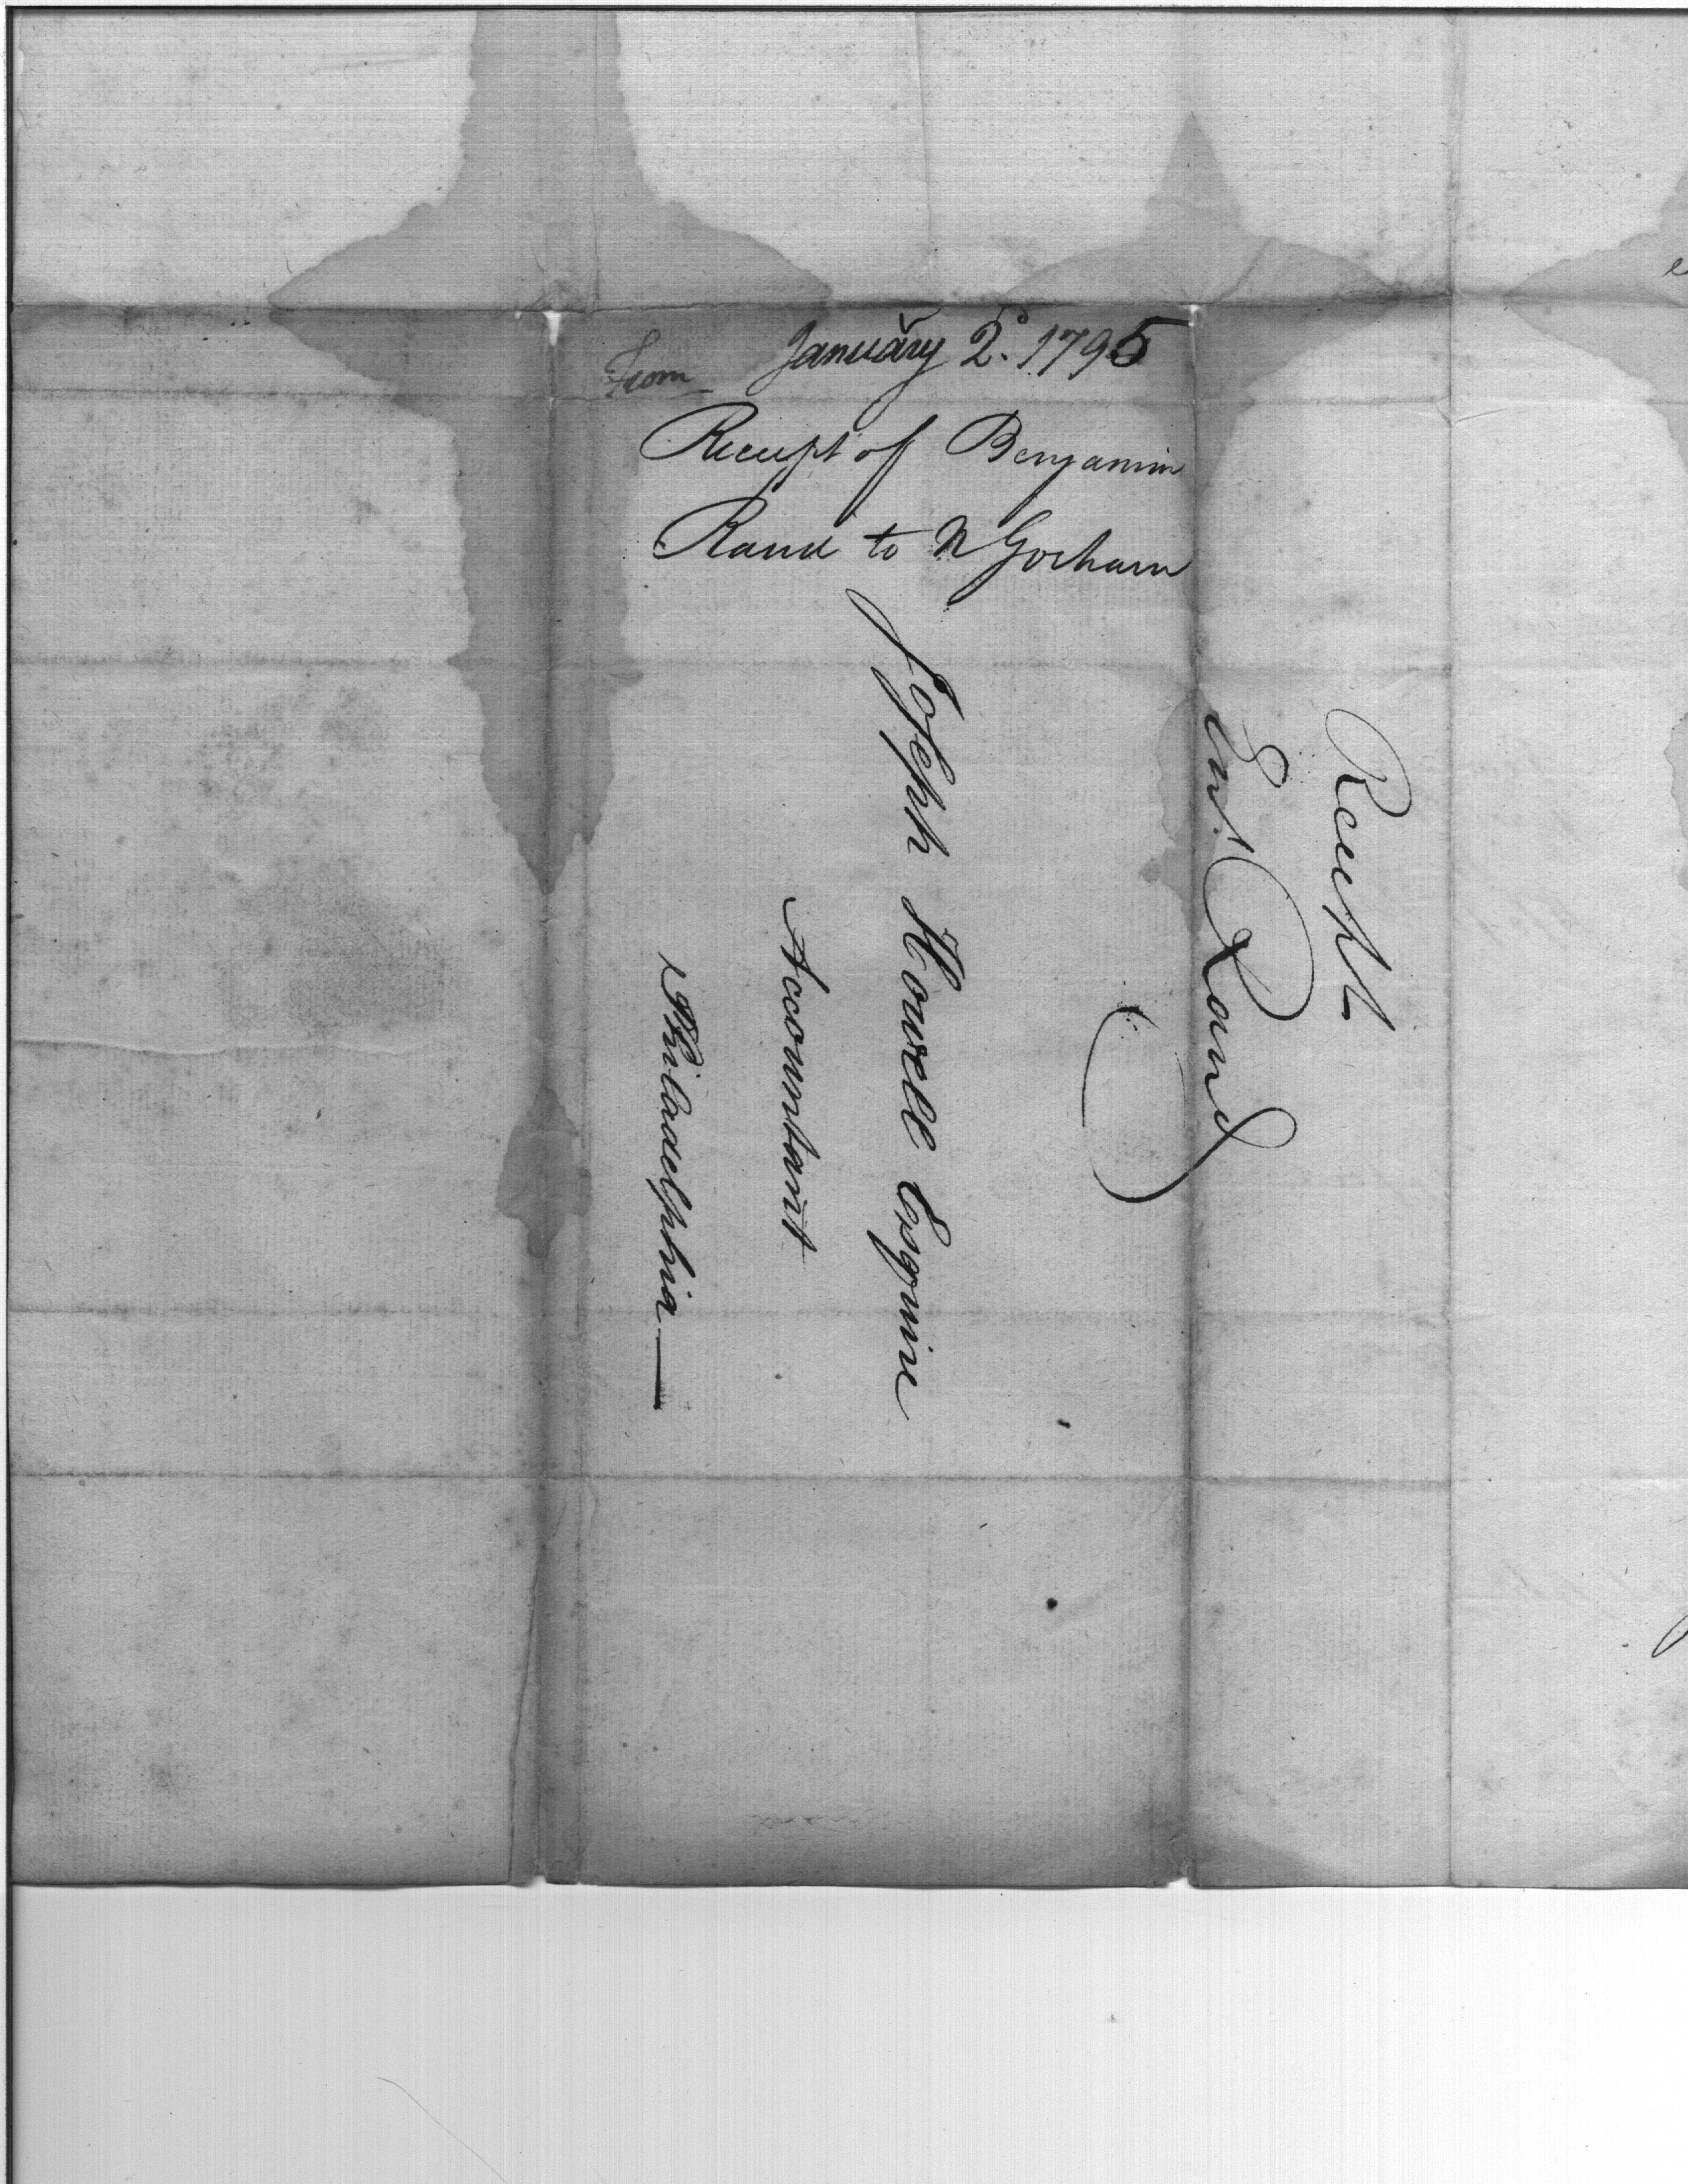 From January 2d. 1795
Receipt of Benjamin
Rand to N Gorham
Joseph Howell Esquire
Accountant
Philadelphia
Receipt
Rand